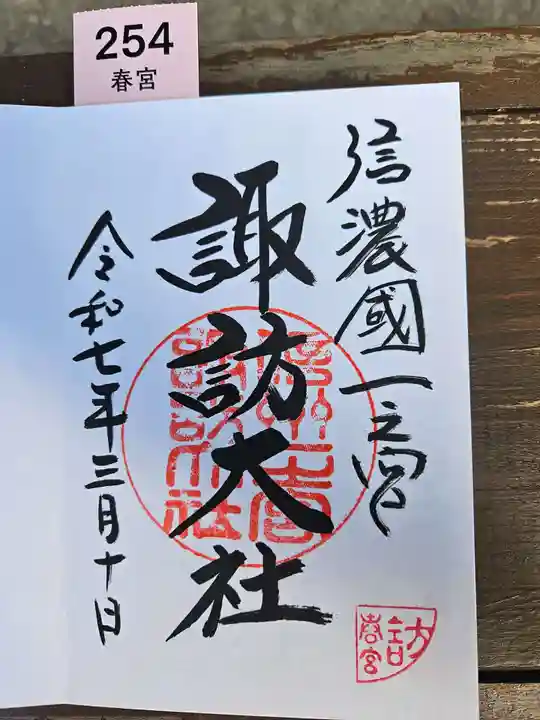 254
春宮
信濃國一之宮
諏訪大社
令和七年三月十日
諏訪
春宮